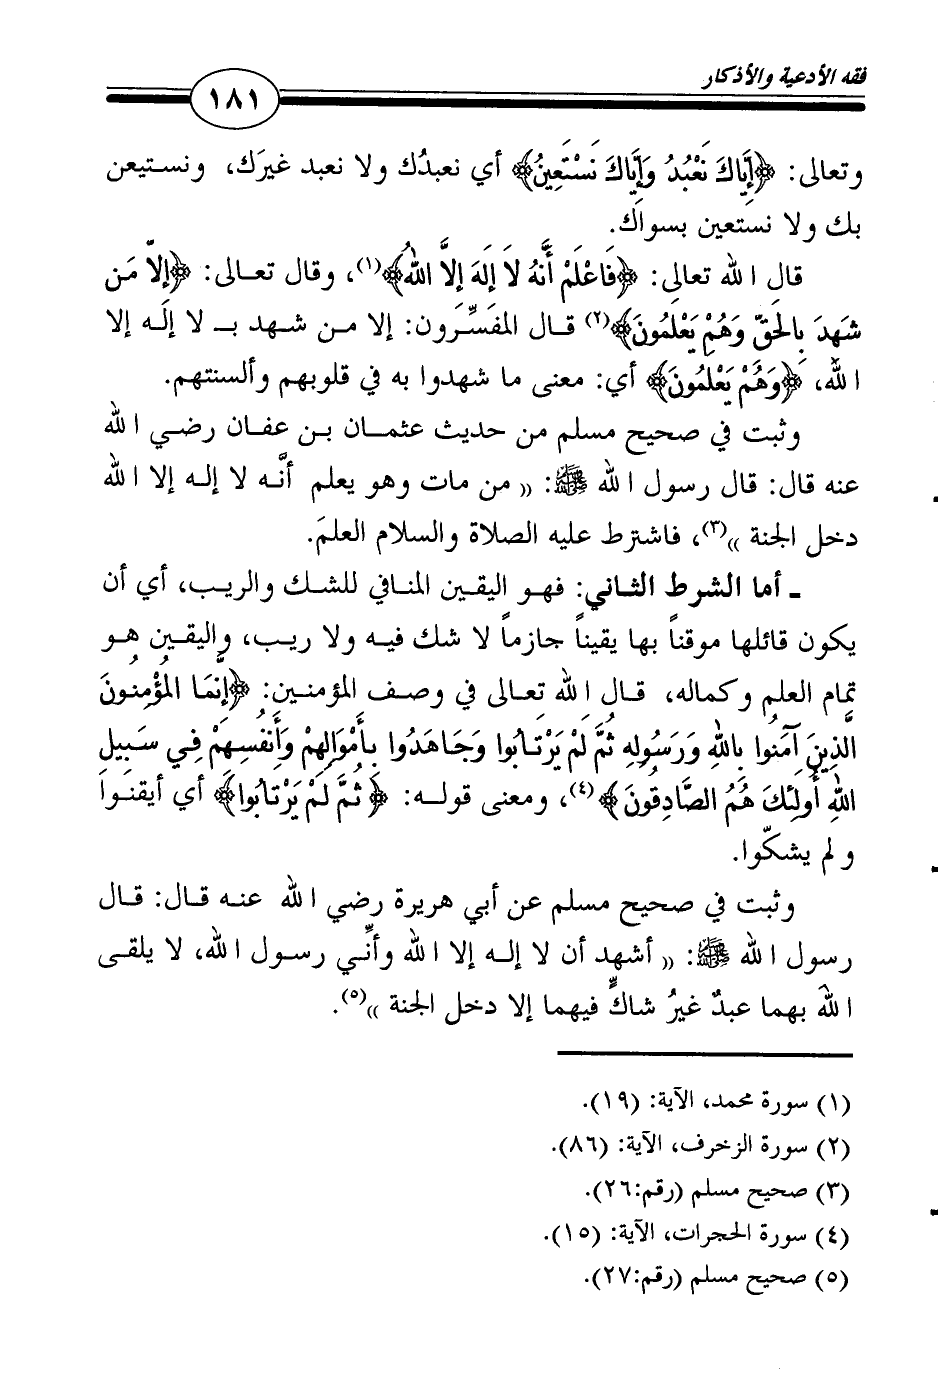 فقه الأدعية والأذكار
١٨١
وتعالى: ﴿إِيَّاكَ نَعْبُدُ وَإِيَّاكَ نَسْتَعِينُ﴾ أي نعبدُك ولا نعبد غيرَك، ونستيعن
بك ولا نستعين بسواك.
قال الله تعالى: ﴿فَاعْلَمْ أَنَّهُ لاَ إِلَهَ إِلاَّ اللهُ﴾(١)، وقال تعالى: ﴿إِلاَّ مَن
شَهِدَ بِالحَقِّ وَهُمْ يَعْلَمُونَ﴾(٢) قال المفسِّرون: إلا من شهد بـ لا إله إلا
الله، ﴿وَهُمْ يَعْلَمُونَ﴾ أي: معنى ما شهدوا به في قلوبهم وألسنتهم.
وثبت في صحيح مسلم من حديث عثمان بن عفان رضي الله
عنه قال: قال رسول الله ﷺ: «من مات وهو يعلم أنَّه لا إله إلا الله
دخل الجنة»(٣)، فاشترط عليه الصلاة والسلام العلمَ.
ـ أما الشرط الثاني: فهو اليقين المنافي للشك والريب، أي أن
يكون قائلها موقناً بها يقيناً جازماً لا شك فيه ولا ريب، واليقين هو
تمام العلم وكماله، قال الله تعالى في وصف المؤمنين: ﴿إِنَّمَا المُؤْمِنُونَ
الَّذِينَ آمَنُوا بِاللهِ وَرَسُولِهِ ثُمَّ لَمْ يَرْتَابُوا وَجَاهَدُوا بِأَمْوَالِهِمْ وَأَنفُسِهِمْ فِي سَبِيلِ
اللهِ أُولَئِكَ هُمُ الصَّادِقُونَ﴾(٤)، ومعنى قوله: ﴿ثُمَّ لَمْ يَرْتَابُوا﴾ أي أيقنوا
ولم يشكّوا.
وثبت في صحيح مسلم عن أبي هريرة رضي الله عنه قال: قال
رسول الله ﷺ: «أشهد أن لا إله إلا الله وأنِّي رسول الله، لا يلقى
اللهَ بهما عبدٌ غيرُ شاكٍّ فيهما إلا دخل الجنة»(٥).
(١) سورة محمد، الآية: (١٩).
(٢) سورة الزخرف، الآية: (٨٦).
(٣) صحيح مسلم (رقم:٢٦).
(٤) سورة الحجرات، الآية: (١٥).
(٥) صحيح مسلم (رقم:٢٧).